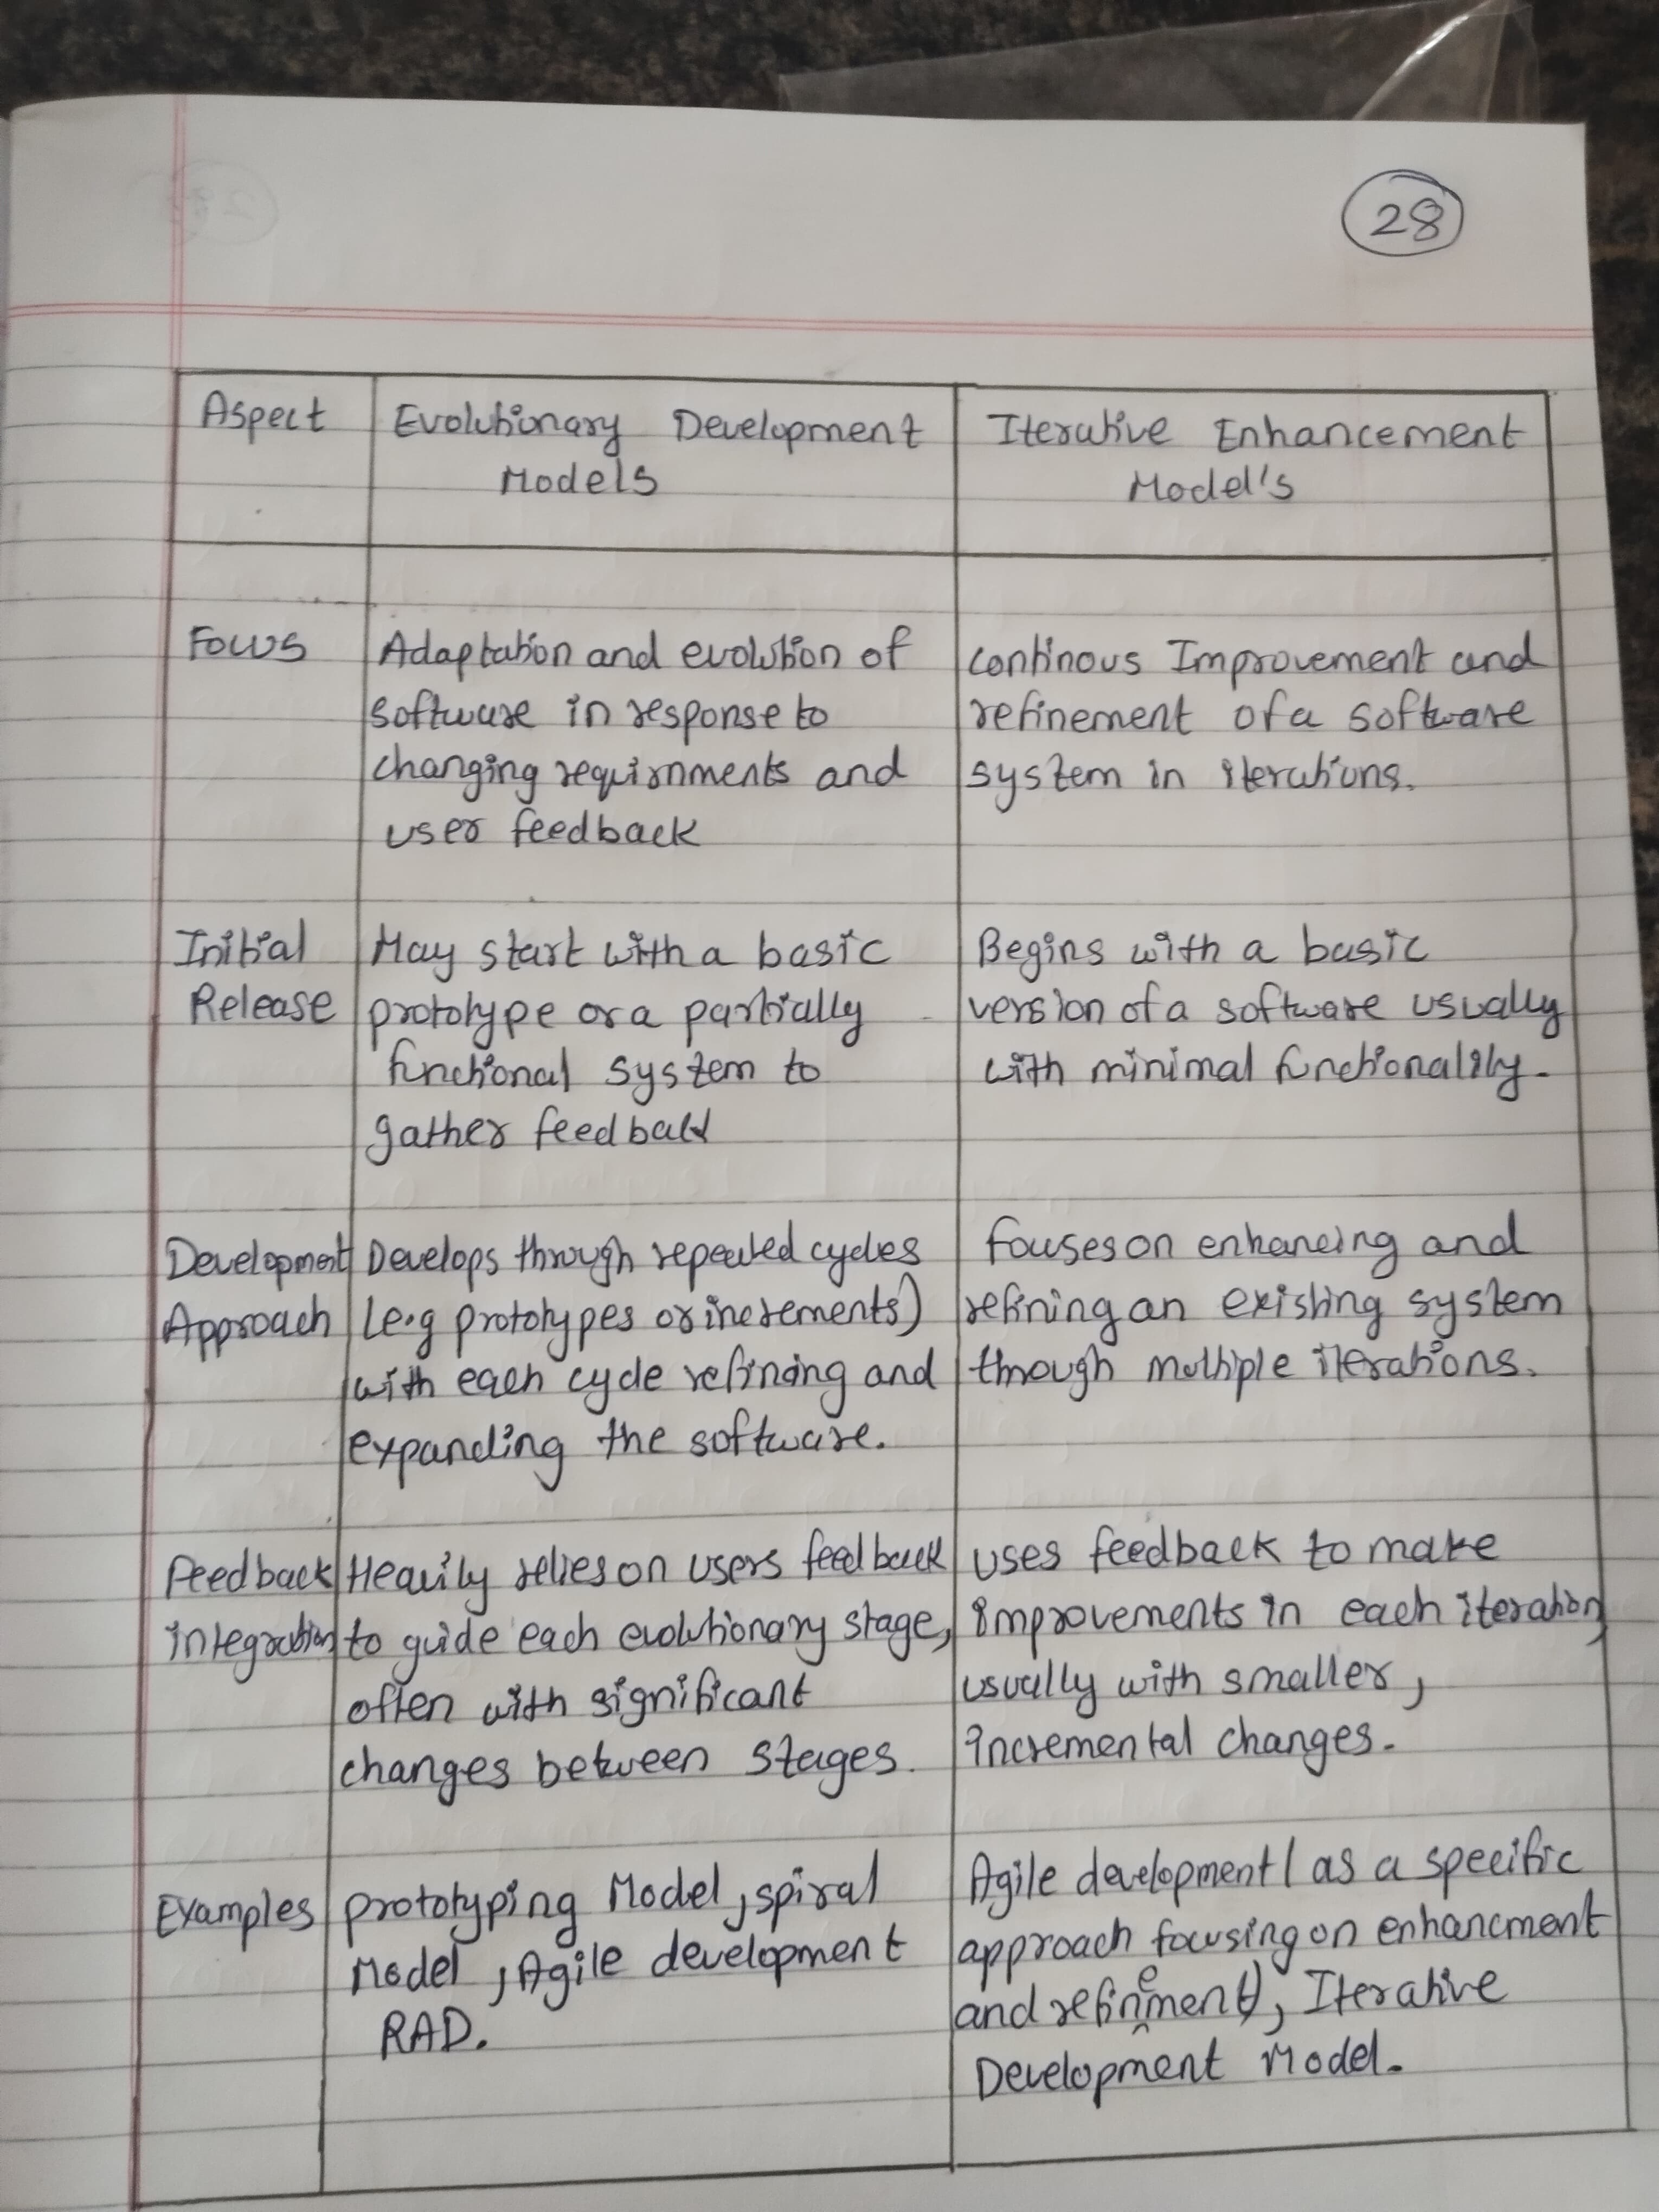 28
Aspect
Evolutionary Development
Models
Iterative Enhancement
Model's
Focus
Adaptation and evolution of
software in response to
changing requirnments and
user feedback
continous Improvement and
refinement of a software
system in iterations.
Initial
Release
May start with a basic
prototype or a partially
functional system to
gather feedback
Begins with a basic
version of a software usually
with minimal functionality.
Development
Approach
Develops through repeated cycles
(e.g prototypes or increments)
with each cycle refining and
expanding the software.
fouses on enhancing and
refining an existing system
through multiple iterations.
Feedback
integration
Heavily relies on users feedback
to guide each evolutionary stage,
often with significant
changes between stages.
uses feedback to make
improvements in each iteration,
usually with smaller,
incremental changes.
Examples
prototyping Model, spiral
Model, Agile development
RAD.
Agile development (as a specific
approach focusing on enhancment
and refinement), Iterative
Development Model.